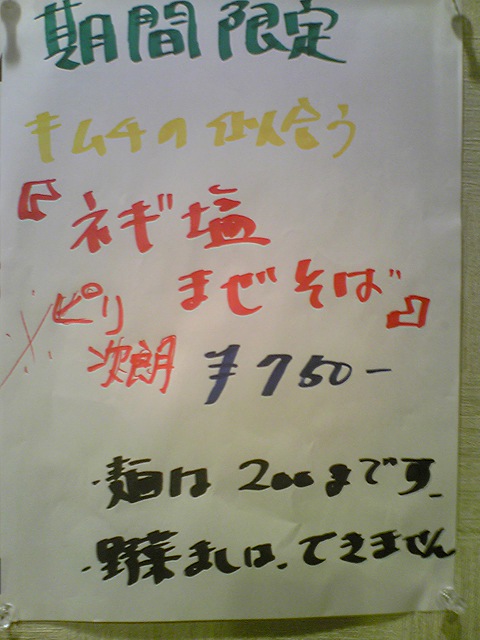 期間限定
キムチの似合う
『ネギ塩
まぜそば』
※ピリ
次朗 ¥750-
・麺は200までです。
・野菜ましは、できません